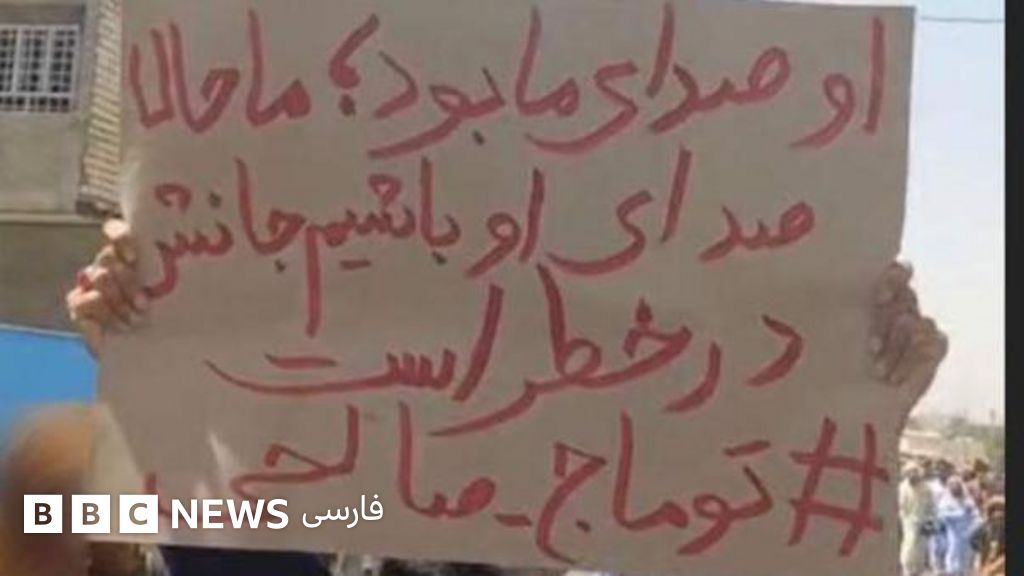 او صدای ما بود؛ ما حالا
صدای او باشیم جانش
در خطر است
#توماج_صالحی
BBC NEWS فارسی